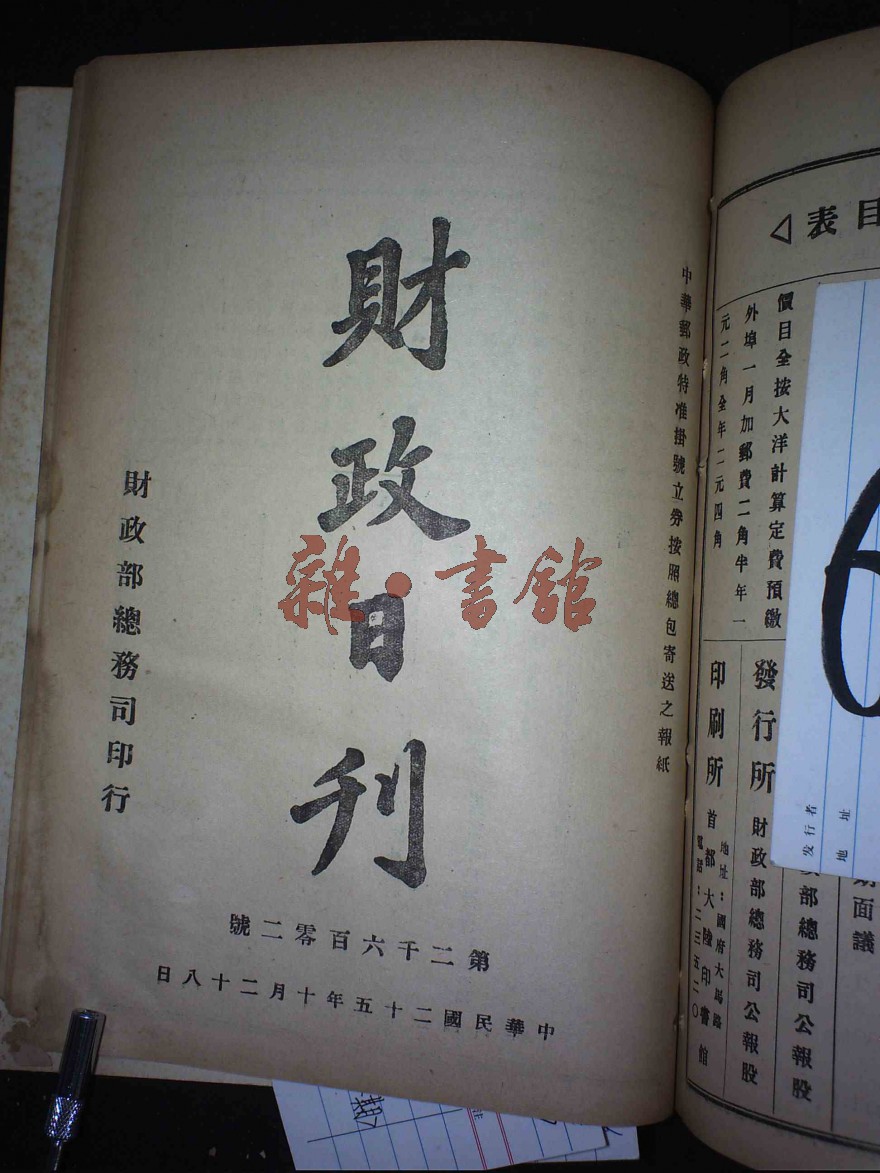 財政日刊
中華郵政特准掛號立券按照總包寄送之報紙
財政部總務司印行
第二千六百零二號
中華民國二十五年十月二十八日
雜·書館
目表
價目全按大洋計算定費預繳
外埠一月加郵費二角半年一
元二角全年二元四角
發行所
財政部總務司公報股
印刷所
首都大陸印書館
地址：國府大馬路
電話：二三五二〇
部總務司公報股
面議
发行者
地址
6